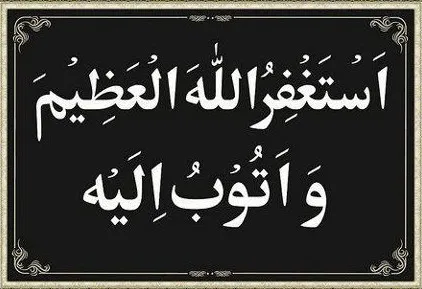 اَسْتَغْفِرُ اللّٰهَ الْعَظِيْمَ
وَ اَتُوْبُ اِلَيْه